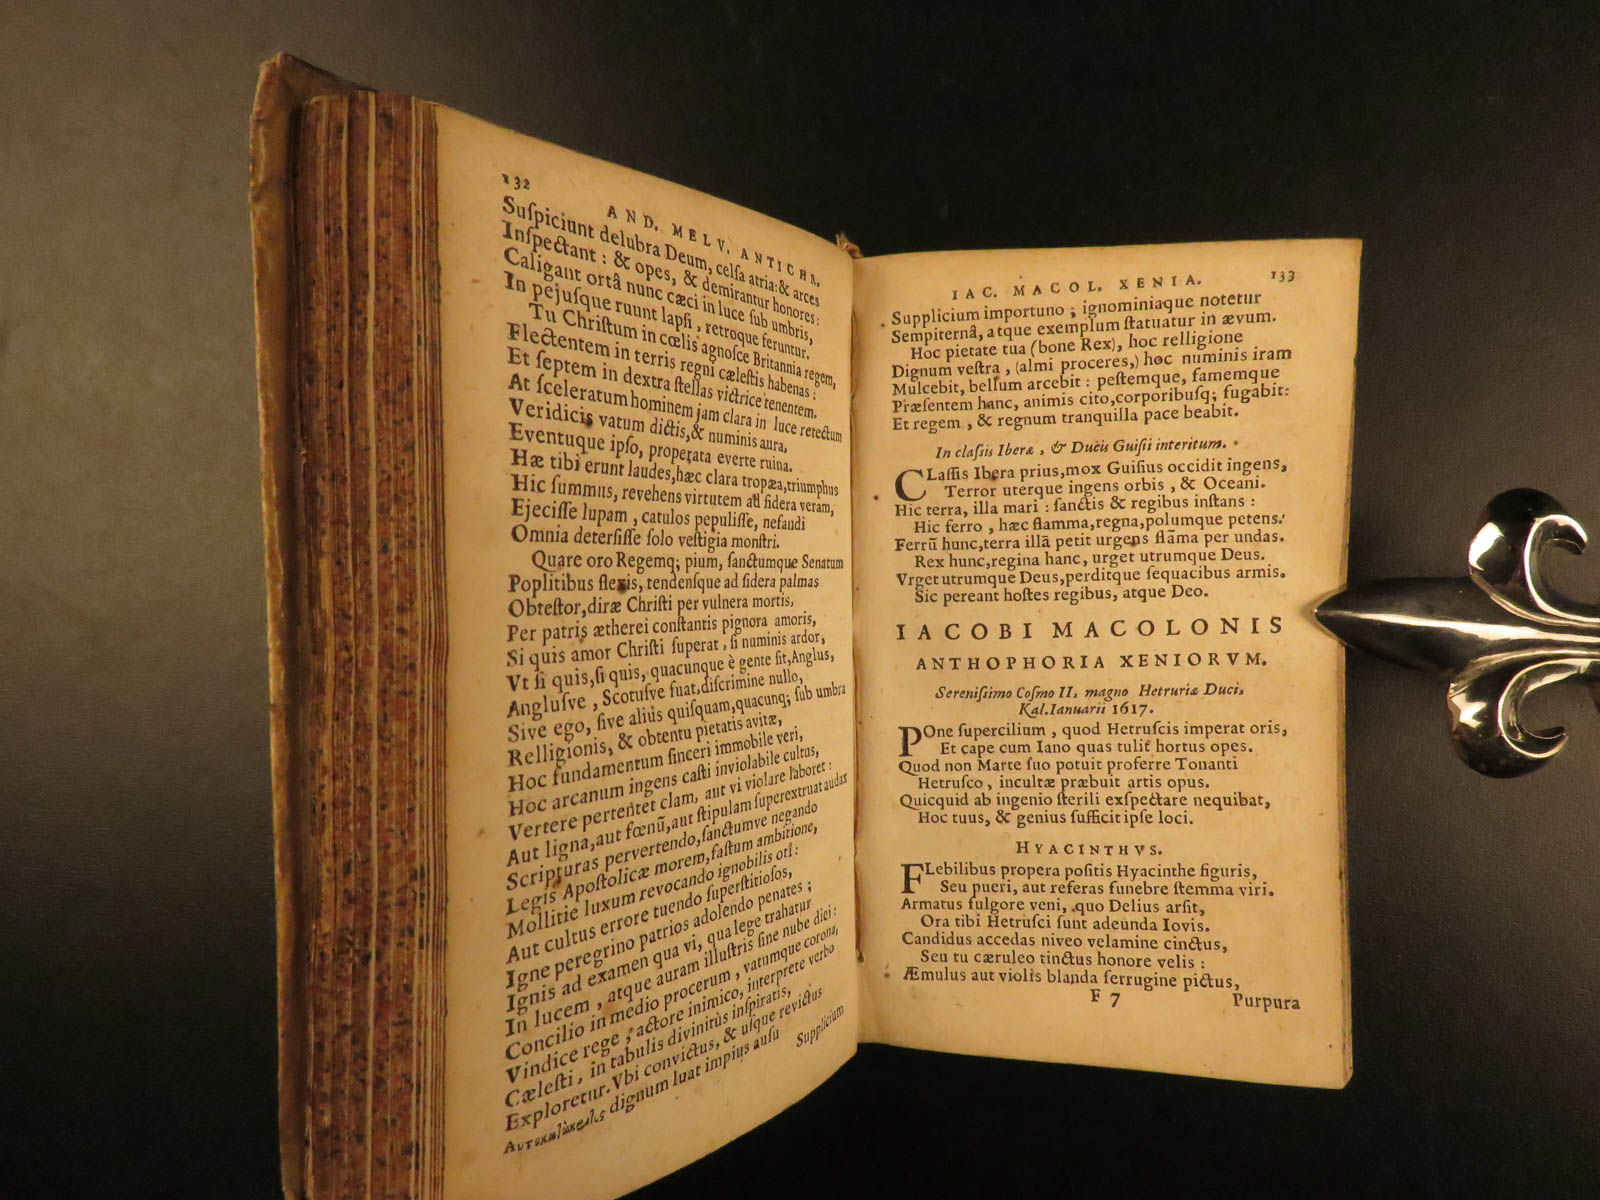 132
AND. MELV. ANTICHR.
Suſpiciunt delubra Deum, celſa atria: & arces
Inſpectant: & opes, & demirantur honores:
Caligant ortâ nunc cæci in luce ſub umbris,
In pejuſque ruunt lapſi, retroque feruntur.
Tu Chriſtum in cœlis agnoſce Britannia regem,
Flectentem in terris regni cæleſtis habenas:
Et ſeptem in dextra ſtellas victrice tenentem.
At ſceleratum hominem jam clara in luce retectum
Veridicis vatum dictis, & numinis aura,
Eventuque ipſo, properata everte ruina.
Hæ tibi erunt laudes, hæc clara tropæa, triumphus
Hic ſummus, revehens virtutem ad ſidera veram,
Ejeciſſe lupam, catulos pepuliſſe, nefandi
Omnia deterſiſſe ſolo veſtigia monſtri.
Quare oro Regemq; pium, ſanctumque Senatum
Poplitibus flexis, tendenſque ad ſidera palmas
Obteſtor, diræ Chriſti per vulnera mortis,
Per patris ætherei conſtantis pignora amoris,
Si quis amor Chriſti ſuperat, ſi numinis ardor,
Vt ſi quis, ſi quis, quacunque è gente ſit, Anglus,
Angluſve, Scotuſve fuat, diſcrimine nullo,
Sive ego, ſive alius quiſquam, quacunq; ſub umbra
Relligionis, & obtentu pietatis avitæ,
Hoc fundamentum ſinceri immobile veri,
Hoc arcanum ingens caſti inviolabile cultus,
Vertere pertentet clam, aut vi violare laboret:
Aut ligna, aut fœnū, aut ſtipulam ſuperextruat audax
Scripturas pervertendo, ſanctumve negando
Legis Apoſtolicæ morem, faſtum ambitione,
Mollitie luxum revocando ignobilis otî:
Aut cultus errore tuendo ſuperſtitioſos,
Igne peregrino patrios adolendo penates;
Ignis ad examen qua vi, qua lege trahatur
In lucem, atque auram illuſtris ſine nube diei:
Concilio in medio procerum, vatumque corona,
Vindice rege; actore inimico, interprete verbo
Cæleſti, in tabulis divinitùs inſpiratis,
Exploretur. Vbi convictus, & uſque revictus
dignum luat impius auſu
Supplicium
IAC. MACOL. XENIA. 133
Supplicium importuno; ignominiaque notetur
Sempiternâ, atque exemplum ſtatuatur in ævum.
Hoc pietate tua (bone Rex), hoc relligione
Dignum veſtra, (almi proceres,) hoc numinis iram
Mulcebit, bellum arcebit: peſtemque, famemque
Præſentem hanc, animis cito, corporibuſq; fugabit:
Et regem, & regnum tranquilla pace beabit.
In claſſis Iberæ, & Ducis Guiſii interitum.
CLaſſis Ibera prius, mox Guiſius occidit ingens,
Terror uterque ingens orbis, & Oceani.
Hic terra, illa mari: ſanctis & regibus inſtans:
Hic ferro, hæc flamma, regna, polumque petens.
Ferrū hunc, terra illā petit urgens flāma per undas.
Rex hunc, regina hanc, urget utrumque Deus.
Vrget utrumque Deus, perditque ſequacibus armis.
Sic pereant hoſtes regibus, atque Deo.
IACOBI MACOLONIS
ANTHOPHORIA XENIORVM.
Sereniſſimo Coſmo II, magno Hetruriæ Duci,
Kal. Ianuarii 1617.
POne ſupercilium, quod Hetruſcis imperat oris,
Et cape cum Iano quas tulit hortus opes.
Quod non Marte ſuo potuit proferre Tonanti
Hetruſco, incultæ præbuit artis opus.
Quicquid ab ingenio ſterili exſpectare nequibat,
Hoc tuus, & genius ſufficit ipſe loci.
HYACINTHVS.
FLebilibus propera poſitis Hyacinthe figuris,
Seu pueri, aut referas funebre ſtemma viri.
Armatus fulgore veni, quo Delius arſit,
Ora tibi Hetruſci ſunt adeunda Iovis.
Candidus accedas niveo velamine cinctus,
Seu tu cæruleo tinctus honore velis:
Æmulus aut violis blanda ferrugine pictus,
F 7 Purpura